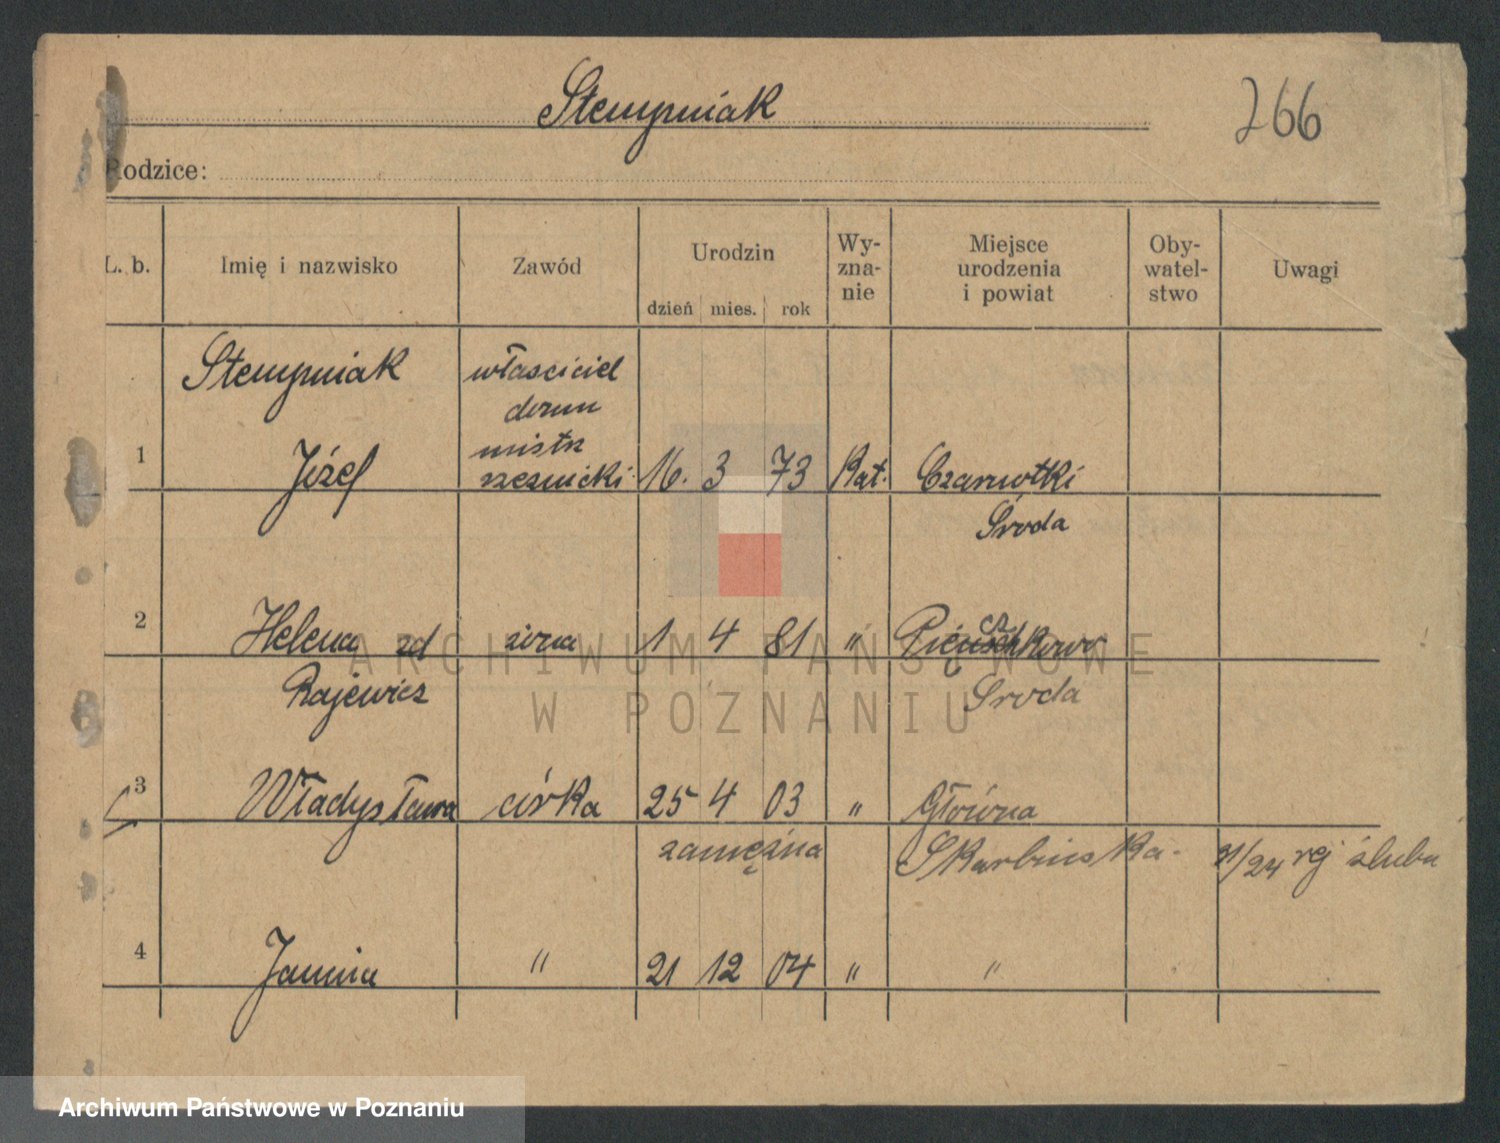 Stempniak
266
Rodzice:
L. b. Imię i nazwisko Zawód Urodzin Wy-zna-nie Miejsce urodzenia i powiat Oby-watel-stwo Uwagi
dzień mies. rok
Stempniak właściciel
domu
mistrz
1 Józef rzeźnicki 16. 3 73 Kat. Czarnotki
Środa
2 Helena zd żona 1 4 81 "
Rajewicz Środa
3 Władysława córka 25 4 03 " Główna
zamężna Skarbinska - rej ślubu
4 Janina " 21 12 04 " "
ARCHIWUM PAŃSTWOWE
W POZNANIU
Archiwum Państwowe w Poznaniu